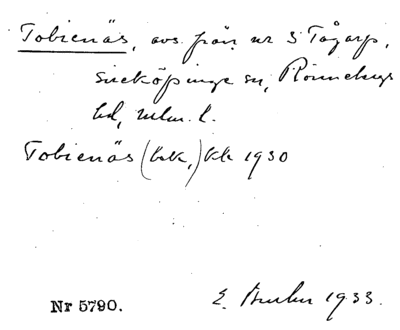 Tobienäs, avs. från nr 3 Tågarp,
Svedköpinge sn, Rönnebergs
hd, Mlm. l.
Tobienäs (bek,) kk 1930
Nr 5790. E. 1933.